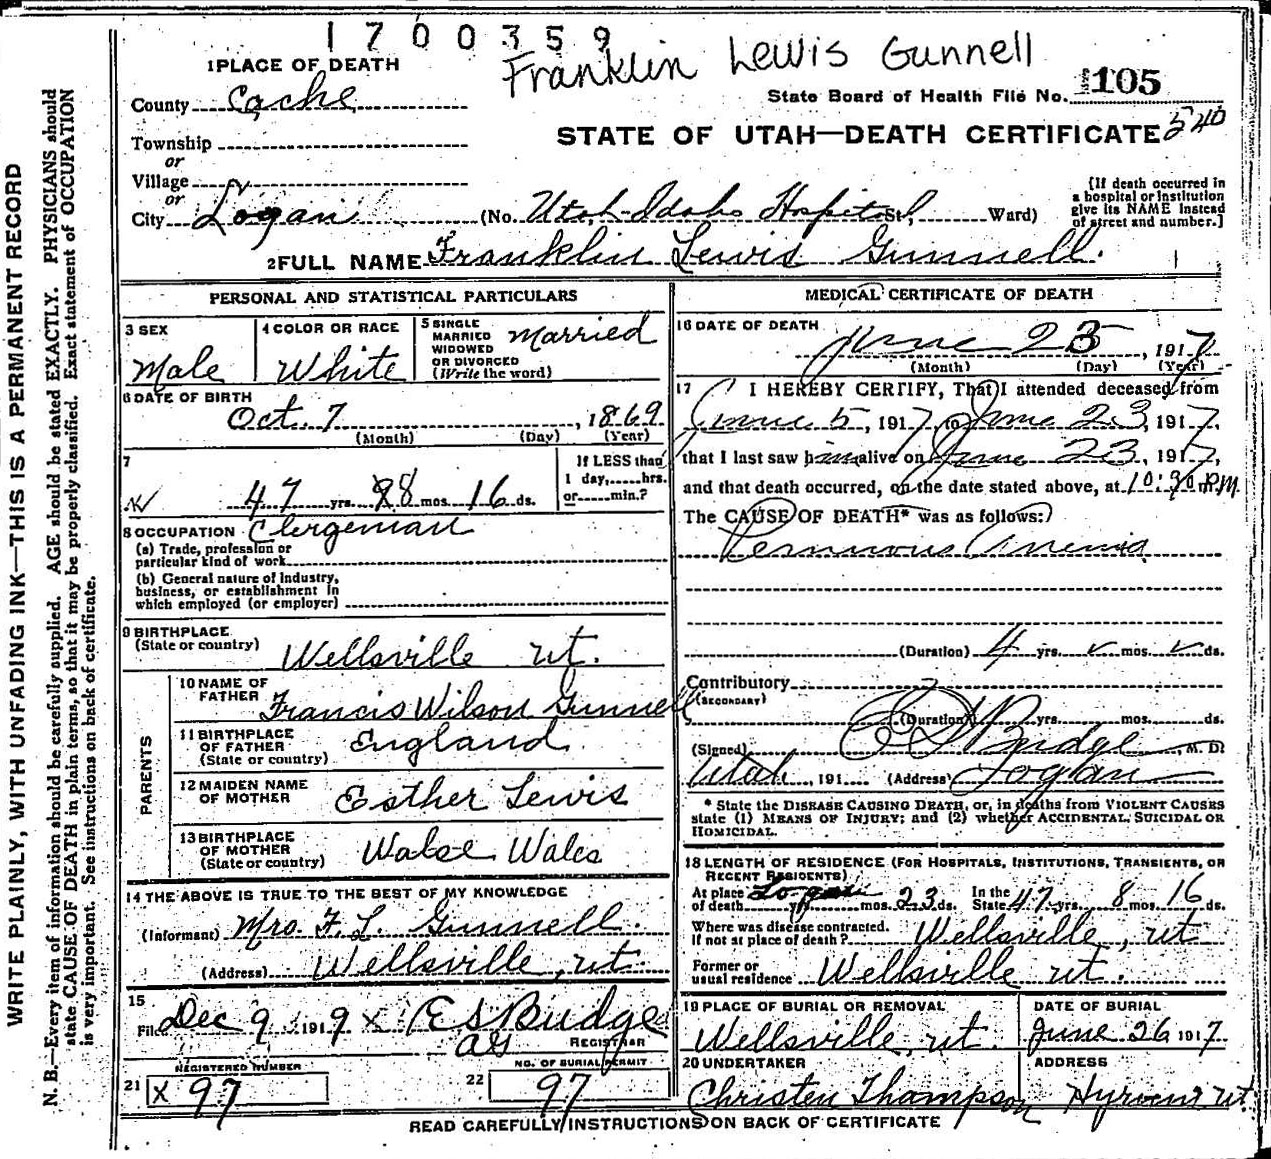 1700359
Franklin Lewis Gunnell
1 PLACE OF DEATH
County Cache
State Board of Health File No. 105
STATE OF UTAH—DEATH CERTIFICATE 540
Township
or
Village
or
City Logan (No. Utah-Idaho Hospital St., Ward)
[If death occurred in a hospital or institution give its NAME instead of street and number.]
2 FULL NAME Franklin Lewis Gunnell.
PERSONAL AND STATISTICAL PARTICULARS
3 SEX
Male
4 COLOR OR RACE
White
5 SINGLE MARRIED WIDOWED OR DIVORCED (Write the word)
Married
6 DATE OF BIRTH
Oct. 7, 1869
(Month) (Day) (Year)
7
47 yrs. 8 mos. 16 ds.
If LESS than
1 day,......hrs.
or......min.?
8 OCCUPATION Clergeman
(a) Trade, profession or
particular kind of work
(b) General nature of industry,
business, or establishment in
which employed (or employer)
9 BIRTHPLACE
(State or country)
Wellsville ut.
PARENTS
10 NAME OF
FATHER
Francis Wilson Gunnell
11 BIRTHPLACE
OF FATHER
(State or country)
England
12 MAIDEN NAME
OF MOTHER
Esther Lewis
13 BIRTHPLACE
OF MOTHER
(State or country)
Wales
14 THE ABOVE IS TRUE TO THE BEST OF MY KNOWLEDGE
(Informant) Mrs. F. L. Gunnell.
(Address) Wellsville, ut.
15
Filed Dec 9, 1919 x E S Budge
REGISTRAR
REGISTERED NUMBER
21 x 97
NO. OF BURIAL PERMIT
22 97
MEDICAL CERTIFICATE OF DEATH
16 DATE OF DEATH
June 23, 1917
(Month) (Day) (Year)
17 I HEREBY CERTIFY, That I attended deceased from
June 5, 1917, to June 23, 1917,
that I last saw him alive on June 23, 1917,
and that death occurred, on the date stated above, at 10:30 P.M.
The CAUSE OF DEATH* was as follows:
Pernnious Anemia
(Duration) 4 yrs. mos. ds.
Contributory
(SECONDARY)
(Duration) yrs. mos. ds.
(Signed) Budge M. D.
Utah, 191 (Address) Logan
* State the DISEASE CAUSING DEATH, or, in deaths from VIOLENT CAUSES
state (1) MEANS OF INJURY; and (2) whether ACCIDENTAL, SUICIDAL OR
HOMICIDAL.
18 LENGTH OF RESIDENCE (FOR HOSPITALS, INSTITUTIONS, TRANSIENTS, OR
RECENT RESIDENTS)
At place
of death yrs. mos. 23 ds.
In the
State 47 yrs. 8 mos. 16 ds.
Where was disease contracted.
If not at place of death? Wellsville, ut
Former or
usual residence Wellsville ut.
19 PLACE OF BURIAL OR REMOVAL
Wellsville, ut.
DATE OF BURIAL
June 26 1917
20 UNDERTAKER
Christen Thompson
ADDRESS
READ CAREFULLY INSTRUCTIONS ON BACK OF CERTIFICATE
WRITE PLAINLY, WITH UNFADING INK—THIS IS A PERMANENT RECORD
N. B.—Every item of information should be carefully supplied. AGE should be stated EXACTLY. PHYSICIANS should
state CAUSE OF DEATH in plain terms, so that it may be properly classified. Exact statement of OCCUPATION
is very important. See instructions on back of certificate.